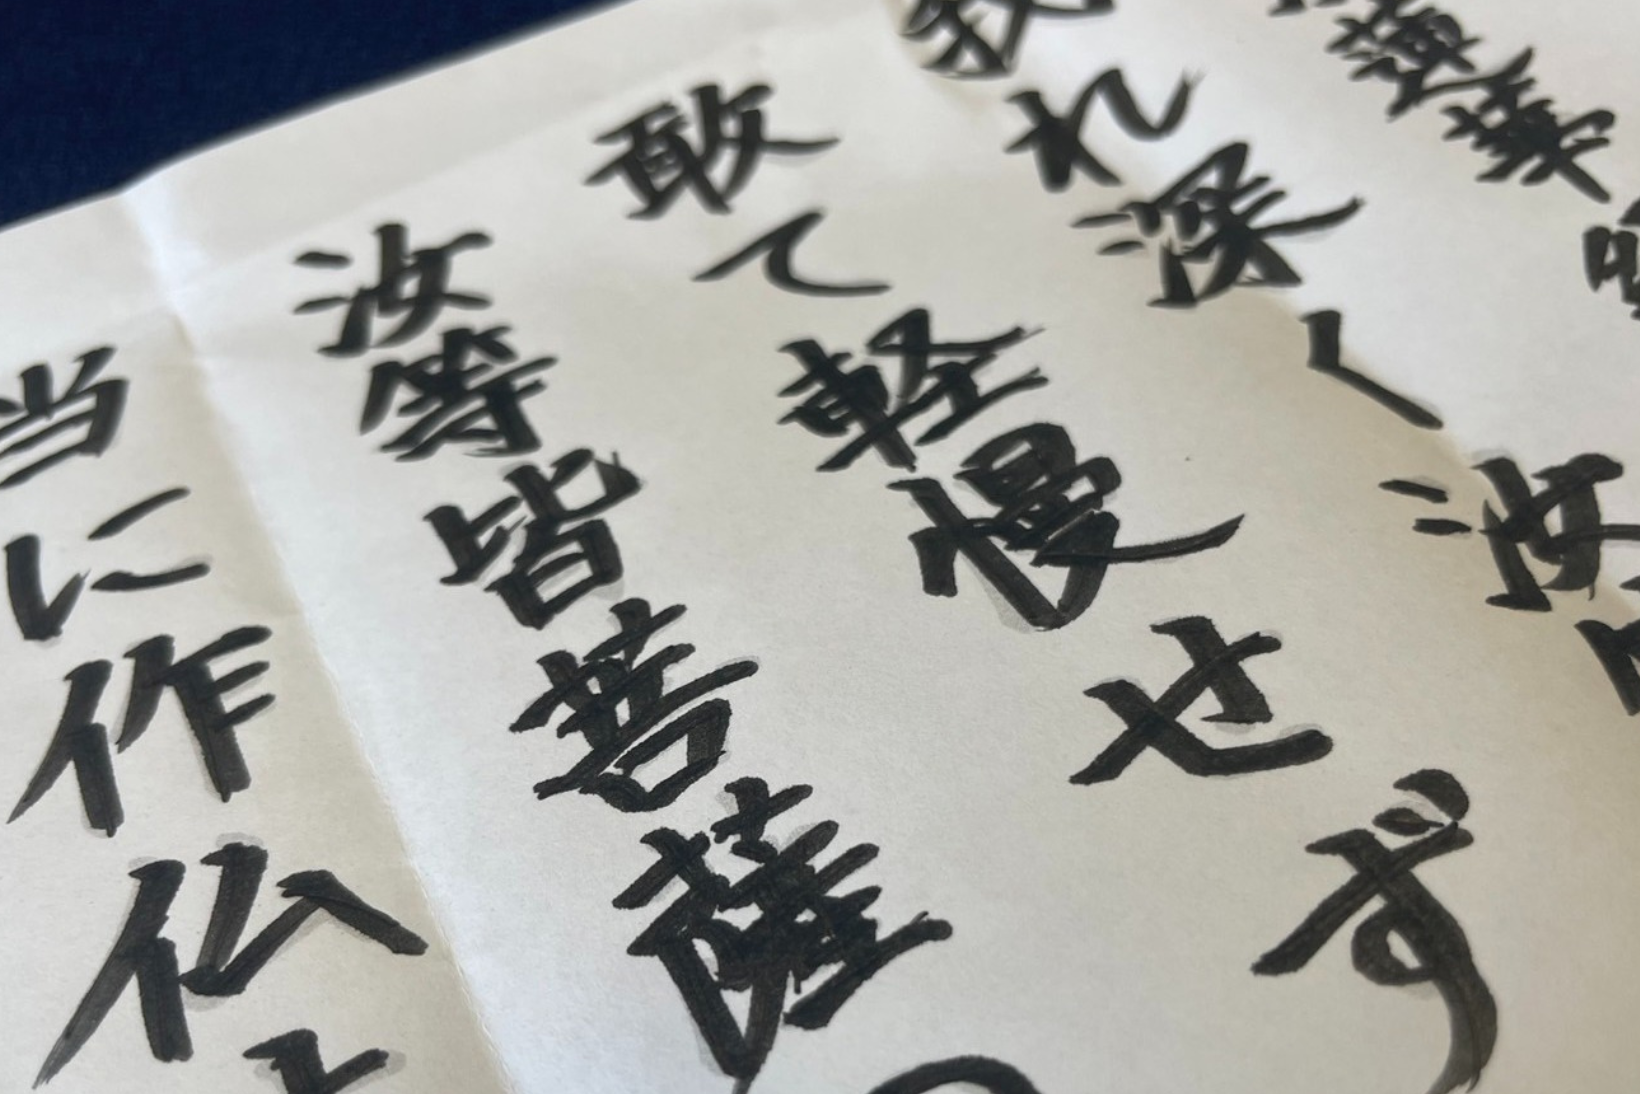 我れ深く汝
敢て軽慢せず
汝等皆菩薩
当に作仏